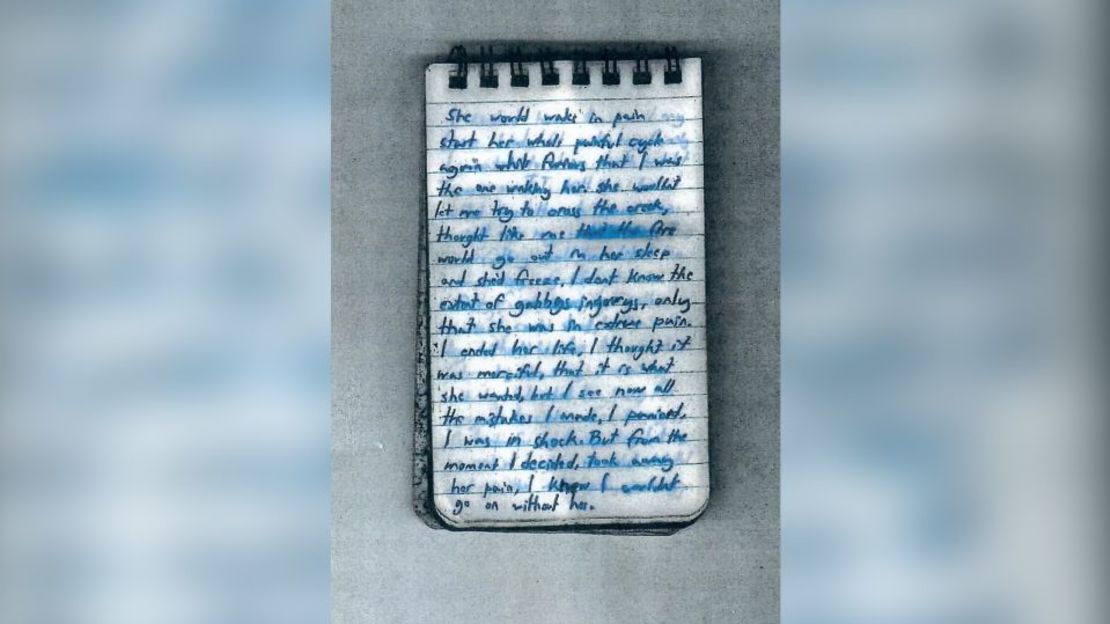 She would wake in pain
start her whole painful cycle
again while furious that I was
the one waking her. she wouldnt
let me try to cross the creek,
thought like me that the fire
would go out in her sleep
and she'd freeze, I dont know the
extent of gabbys ingurys, only
that she was in extreme pain.
I ended her life, I thought it
was merciful, that it is what
she wanted, but I see now all
the mistakes I made, I panicked,
I was in shock. But from the
moment I decided, took away
her pain, I knew I wouldnt
go on without her.